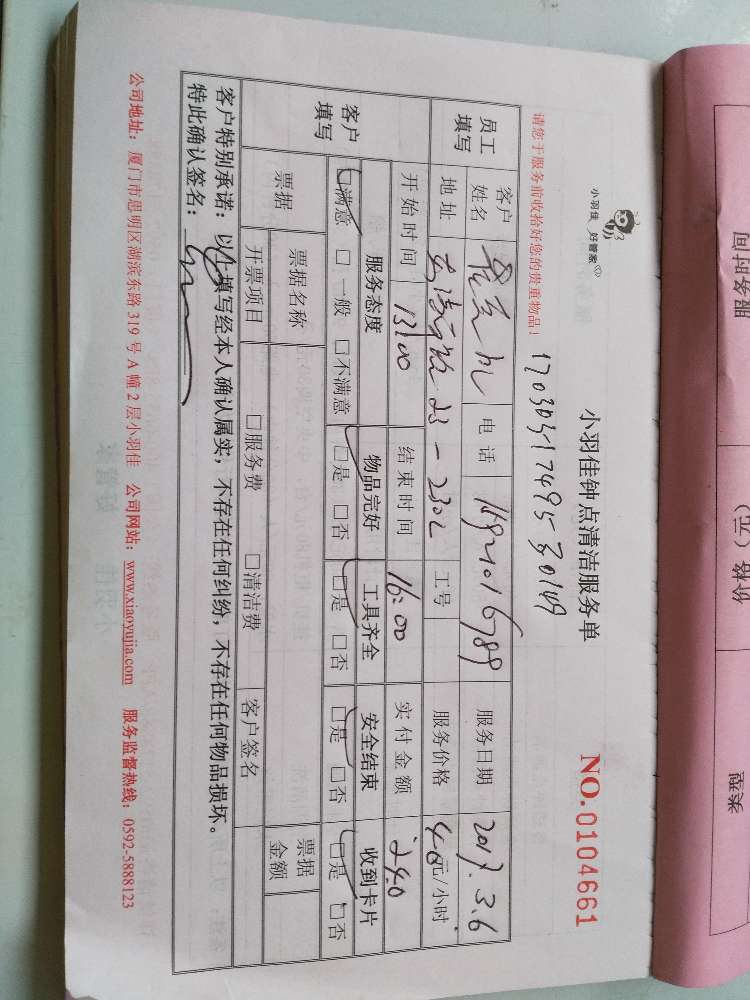 小羽佳 好管家
小羽佳钟点清洁服务单
NO.0104661
请您于服务前收拾好您的贵重物品！
员工填写 客户姓名 电话 服务日期 2017.3.6
地址 23-230 工号 服务价格 40元/小时
开始时间 13:00 结束时间 16:00 实付金额 240
客户填写 服务态度 物品完好 工具齐全 安全结束 收到卡片
□满意 □一般 □不满意 □是 □否 □是 □否 □是 □否 □是 □否
票据 票据名称 票据金额
开票项目 □服务费 □清洁费 客户签名
客户特别承诺：以上填写经本人确认属实，不存在任何纠纷，不存在任何物品损坏。
特此确认签名：
公司地址：厦门市思明区湖滨东路 319 号 A 幢 2 层小羽佳 公司网站：www.xiaoyujia.com 服务监督热线：0592-5888123
服务时间
价格（元）
票据